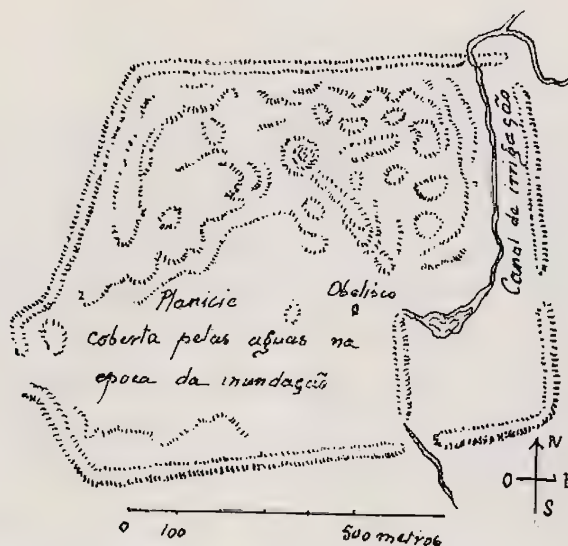 Canal de irrigação
Planicie
Obelisco
coberta pelas aguas na
epoca da inundação
N
O E
S
0 100 500 metros